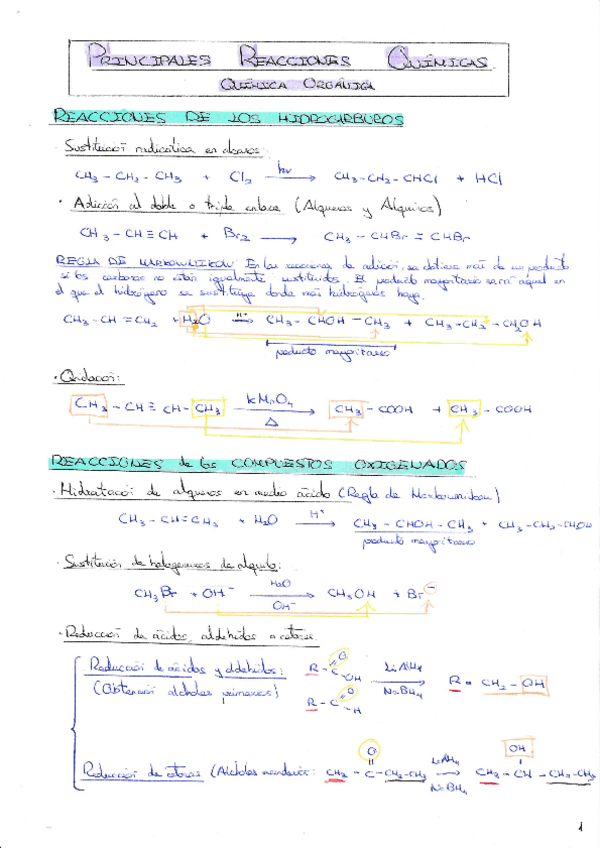 PRINCIPALES REACCIONES QUÍMICAS.
QUÍMICA ORGÁNICA
REACCIONES DE LOS HIDROCARBUROS
· Sustitución radicalica en alcanos:
CH3 - CH2 - CH3 + Cl2 hν → CH3 - CH2 - CHCl + HCl
· Adición al doble o triple enlace (Alquenos y Alquinos)
CH3 - CH ≡ CH + Br2 → CH3 - CHBr = CHBr
REGLA DE MARKOWNIKOW En las reacciones de adición, se obtiene más de un producto
si los carbonos no están igualmente sustituidos. El producto mayoritario será aquel en
el que el hidrógeno se sustituya donde más hidrógenos haya.
CH3 - CH = CH2 + H2O H+ → CH3 - CHOH - CH3 + CH3 - CH2 - CH2OH
producto mayoritario
· Oxidación:
CH3 - CH = CH - CH3 KMnO4 → Δ CH3 - COOH + CH3 - COOH
REACCIONES de los COMPUESTOS OXIGENADOS
· Hidratación de alquenos en medio ácido (Regla de Markownikow)
CH3 - CH = CH2 + H2O H+ → CH3 - CHOH - CH3 + CH3 - CH2 - CH2OH
producto mayoritario
· Sustitución de halogenuros de alquilo:
CH3Br + OH- H2O → OH- CH3OH + Br-
· Reducción de ácidos, aldehídos o cetonas.
Reducción de ácidos y aldehídos: R - C = O OH LiAlH4 → NaBH4 R - CH2 - OH
(Obtención alcoholes primarios) R - C = O H
O OH
Reducción de cetonas (Alcoholes secundarios: CH3 - C - CH2 - CH3 LiAlH4 → NaBH4 CH3 - CH - CH2 - CH3
1